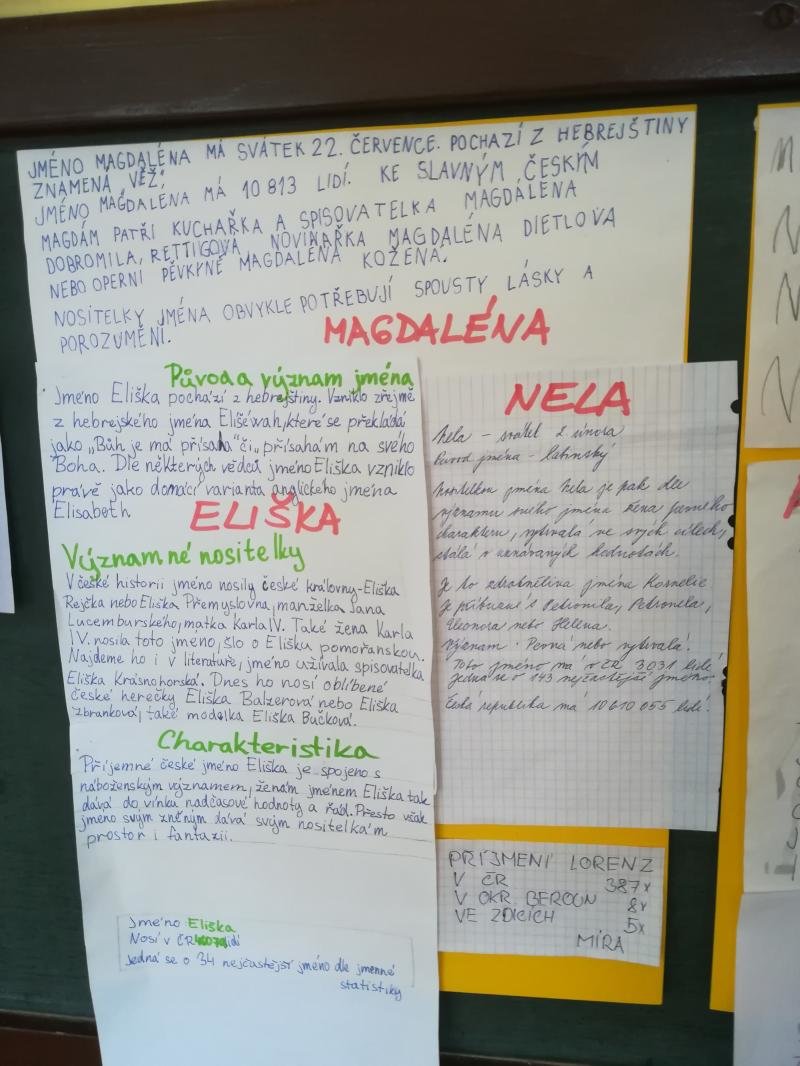 JMÉNO MAGDALÉNA MÁ SVÁTEK 22. ČERVENCE. POCHAZÍ Z HEBREJŠTINY
ZNAMENÁ „VĚŽ“,
JMÉNO MAGDALÉNA MÁ 10 813 LIDÍ. KE SLAVNÝM ČESKÝM
MAGDÁM PATŘÍ KUCHAŘKA A SPISOVATELKA MAGDALÉNA
DOBROMILA, RETTIGOVÁ NOVINAŘKA MAGDALÉNA DIETLOVA
NEBO OPERNÍ PĚVKYNĚ MAGDALÉNA KOŽENÁ.
NOSITELKY JMÉNA OBVYKLE POTŘEBUJÍ SPOUSTY LÁSKY A
POROZUMĚNÍ.
MAGDALÉNA
Původ a význam jména
Jméno Eliška pochází z hebrejštiny. Vzniklo zřejmě
z hebrejského jména Elíšéwah, které se překládá
jako „Bůh je má přísaha“ či „přísahám na svého
Boha. Dle některých vědců jméno Eliška vzniklo
právě jako domácí varianta anglického jména
Elisabeth
ELIŠKA
Významné nositelky
V české historii jméno nosily české královny-Eliška
Rejčka nebo Eliška Přemyslovna, manželka Jana
Lucemburského, matka Karla IV. Také žena Karla
IV. nosila toto jméno, šlo o Elišku pomořanskou.
Najdeme ho i v literatuře, jméno užívala spisovatelka
Eliška Krásnohorská. Dnes ho nosí oblíbené
české herečky Eliška Balzerová nebo Eliška
zbranková, také modelka Eliška Bučková.
Charakteristika
Příjemné české jméno Eliška je spojeno s
náboženským významem, ženám jménem Eliška tak
dává do vínku nadčasové hodnoty a řád. Přesto však
jméno svým zněným dává svým nositelkám
prostor i fantazii.
Jméno Eliška
Nosí v ČR lidí
Jedná se o 34 nejčastější jméno dle jmenné
statistiky
NELA
Nela – svátek 2 února
Původ jména – latinský
Nositelkou jména Nela je pak dle
významu svého jména žena pevného
charakteru, vytrvalá ve svých cílech,
stálá v uznávaných hodnotách.
Je to zdrobnělina jména Kornelie
je příbuzné s Petronila, Petronela,
Eleonora nebo Helena.
Význam: Pevná nebo vytrvalá.
Toto jméno má v ČR 3031 lidí.
Jedná se o 143 nejčastější jméno.
Česká republika má 10 610 055 lidí.
PŘÍJMENÍ LORENZ
V ČR 387x
V OKR BEROUN 8x
VE ZDICÍCH 5x
MÍRA